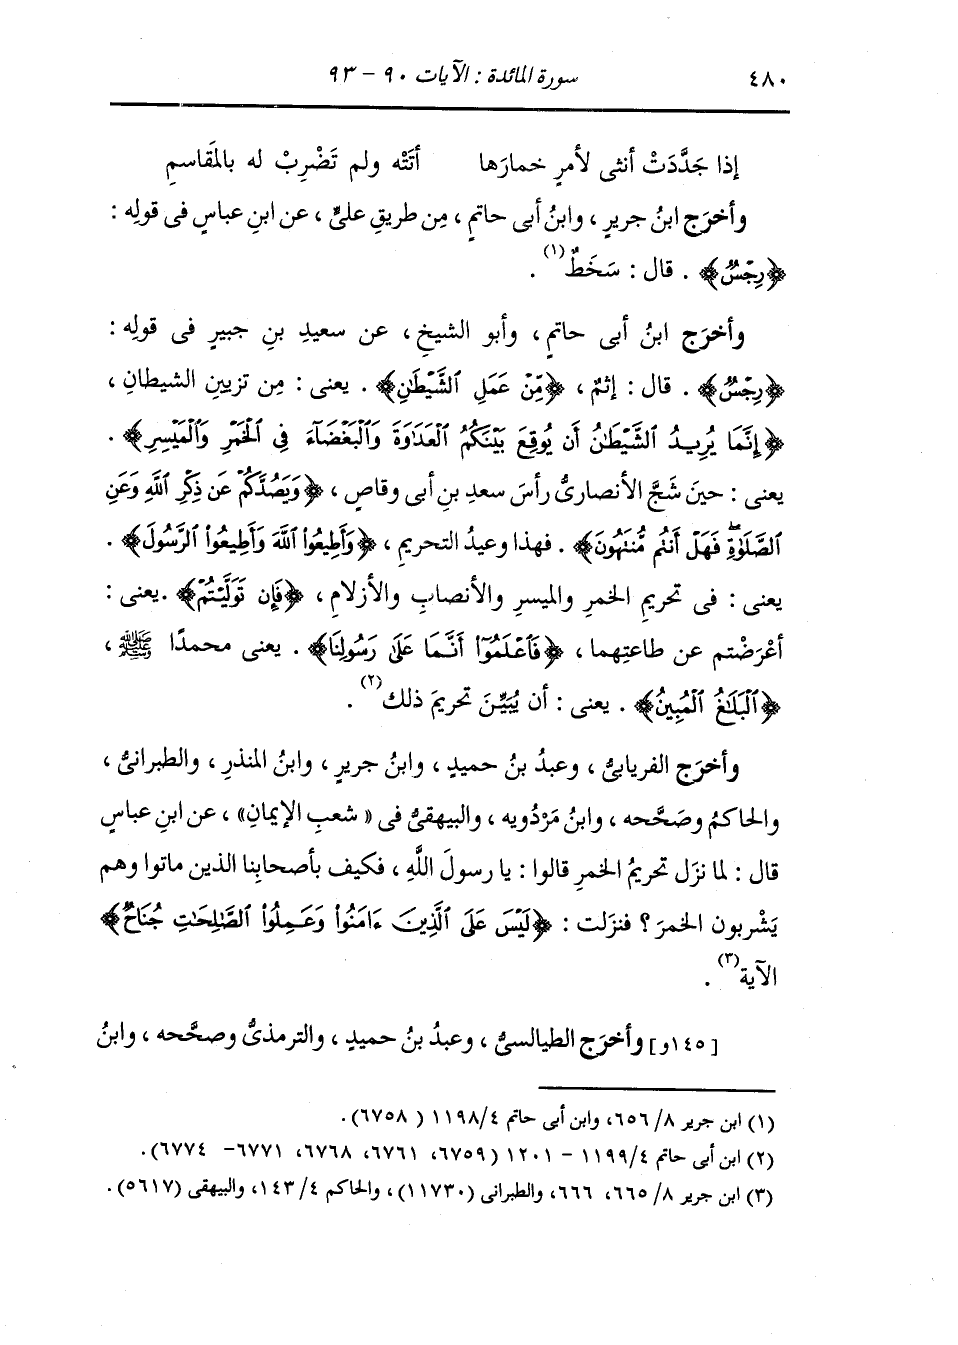 ٤٨٠ سورة المائدة : الآيات ٩٠ - ٩٣
إذا جَدَّدَتْ أنثى لأمرٍ خمارَها أتَتْه ولم تَضْرِبْ له بالمَقَاسمِ
وأخرَج ابنُ جريرٍ ، وابنُ أبى حاتمٍ ، مِن طريقِ علىٍّ ، عن ابنِ عباسٍ فى قولِه :
﴿رِجْسٌ﴾ . قال : سَخَطٌ(١) .
وأخرَج ابنُ أبى حاتمٍ ، وأبو الشيخِ ، عن سعيدِ بنِ جبيرٍ فى قولِه :
﴿رِجْسٌ﴾ . قال : إثمٌ ، ﴿مِّنْ عَمَلِ ٱلشَّيْطَٰنِ﴾ . يعنى : مِن تزيينِ الشيطانِ ،
﴿إِنَّمَا يُرِيدُ ٱلشَّيْطَٰنُ أَن يُوقِعَ بَيْنَكُمُ ٱلْعَدَٰوَةَ وَٱلْبَغْضَآءَ فِى ٱلْخَمْرِ وَٱلْمَيْسِرِ﴾ .
يعنى : حينَ شَجَّ الأنصارىُّ رأسَ سعدِ بنِ أبى وقاصٍ ، ﴿وَيَصُدَّكُمْ عَن ذِكْرِ ٱللَّهِ وَعَنِ
ٱلصَّلَوٰةِۖ فَهَلْ أَنتُم مُّنتَهُونَ﴾ . فهذا وعيدُ التحريمِ ، ﴿وَأَطِيعُوا۟ ٱللَّهَ وَأَطِيعُوا۟ ٱلرَّسُولَ﴾ .
يعنى : فى تحريمِ الخمرِ والميسرِ والأنصابِ والأزلامِ ، ﴿فَإِن تَوَلَّيْتُمْ﴾ .يعنى :
أعْرَضْتم عن طاعتِهما ، ﴿فَٱعْلَمُوٓا۟ أَنَّمَا عَلَىٰ رَسُولِنَا﴾ . يعنى محمدًا ﷺ ،
﴿ٱلْبَلَٰغُ ٱلْمُبِينُ﴾ . يعنى : أن يُبَيِّنَ تحريمَ ذلك(٢) .
وأخرَج الفريابىُّ ، وعبدُ بنُ حميدٍ ، وابنُ جريرٍ ، وابنُ المنذرِ ، والطبرانىُّ ،
والحاكمُ وصَحَّحه ، وابنُ مَرْدُويه ، والبيهقىُّ فى « شعبِ الإيمانِ» ، عن ابنِ عباسٍ
قال : لما نزَل تحريمُ الخمرِ قالوا : يا رسولَ اللَّهِ ، فكيف بأصحابِنا الذين ماتوا وهم
يَشْربون الخمرَ ؟ فنزَلت : ﴿لَيْسَ عَلَى ٱلَّذِينَ ءَامَنُوا۟ وَعَمِلُوا۟ ٱلصَّٰلِحَٰتِ جُنَاحٌ﴾
الآية(٣) .
[١٤٥و] وأخرَج الطيالسىُّ ، وعبدُ بنُ حميدٍ ، والترمذىُّ وصحَّحه ، وابنُ
(١) ابن جرير ٨/ ٦٥٦، وابن أبى حاتم ٤/ ١١٩٨ ( ٦٧٥٨).
(٢) ابن أبى حاتم ٤/ ١١٩٩ - ١٢٠١ (٦٧٥٩، ٦٧٦١، ٦٧٦٨، ٦٧٧١- ٦٧٧٤).
(٣) ابن جرير ٨/ ٦٦٥، ٦٦٦، والطبرانى (١١٧٣٠)، والحاكم ٤/ ١٤٣، والبيهقى (٥٦١٧).